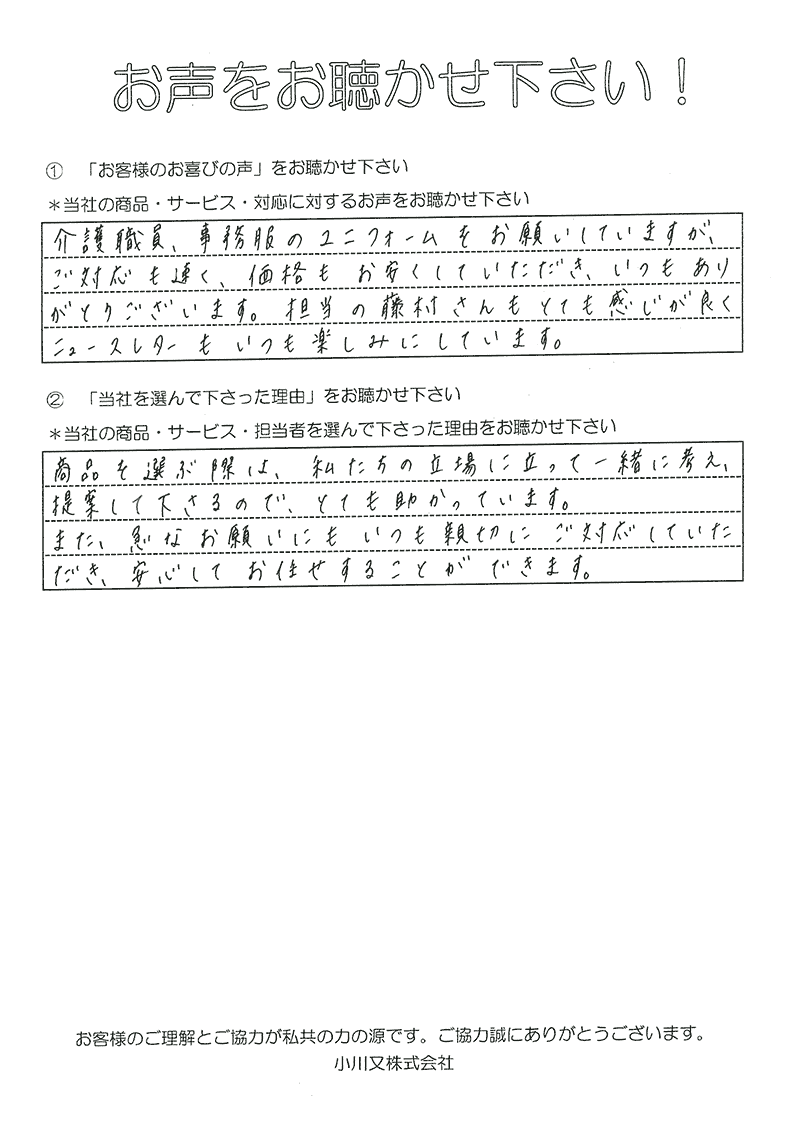 お声をお聴かせ下さい！
① 「お客様のお喜びの声」をお聴かせ下さい
＊当社の商品・サービス・対応に対するお声をお聴かせ下さい
介護職員、事務服のユニフォームをお願いしていますが、
ご対応も速く、価格もお安くしていただき、いつもあり
がとうございます。担当の藤村さんもとても感じが良く
ニュースレターもいつも楽しみにしています。
② 「当社を選んで下さった理由」をお聴かせ下さい
＊当社の商品・サービス・担当者を選んで下さった理由をお聴かせ下さい
商品を選ぶ際は、私たちの立場に立って一緒に考え、
提案して下さるので、とても助かっています。
また、急なお願いにもいつも親切にご対応していた
だき、安心してお任せすることができます。
お客様のご理解とご協力が私共の力の源です。ご協力誠にありがとうございます。
小川又株式会社